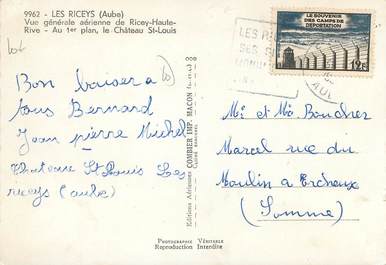 9962 - LES RICEYS (Aube)
Vue générale aérienne de Ricey-Haute-
Rive - Au 1er plan, le Château St-Louis
Bon baisers a
tous Bernard
Jean pierre Michel
Chateau St Louis Les
riceys (aube)
Editions Aériennes COMBIER IMP. MACON
LES RI
SES
MONU
LE SOUVENIR
DES CAMPS DE
DÉPORTATION
12F
AUBE
Mr et Me Boucher
Marcel rue du
Moulin a Ercheux
(Somme)
PHOTOGRAPHIE VÉRITABLE
Reproduction Interdite